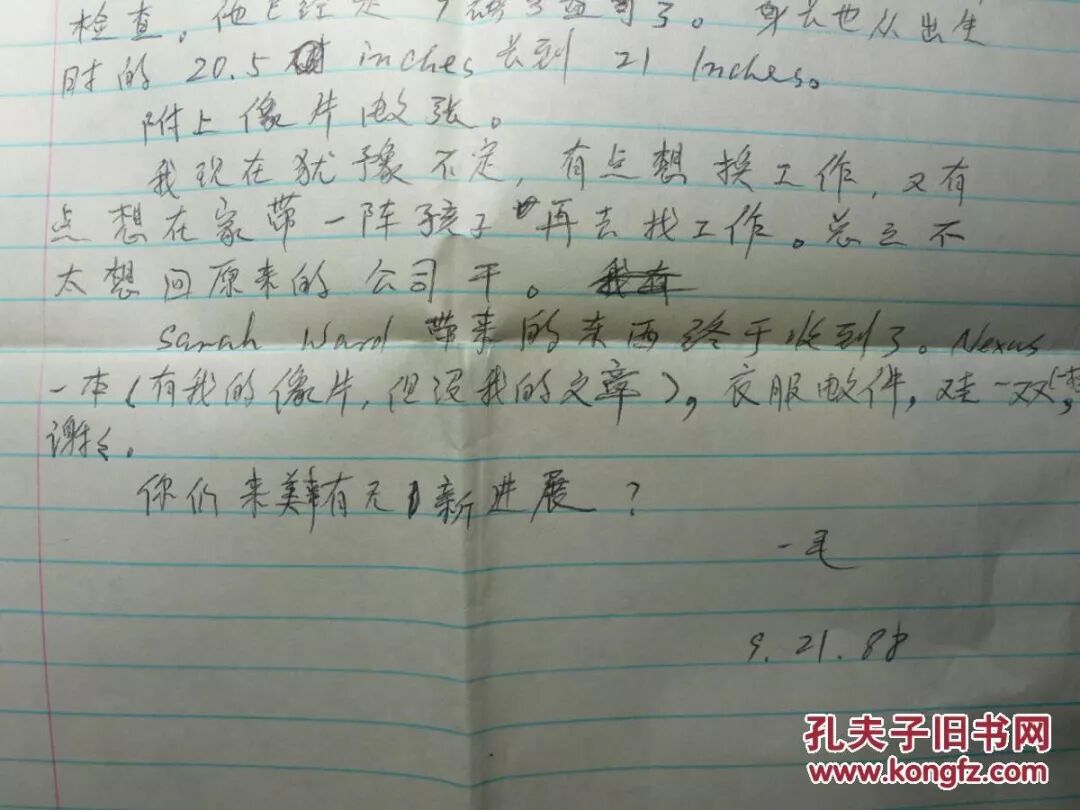 检查。他已经是9磅3盎司了。身长也从出生
时的 20.5 inches 长到 21 Inches。
附上像片数张。
我现在犹豫不定，有点想换工作，又有
点想在家带一阵孩子再去找工作。总之不
太想回原来的公司干。我在
Sarah Ward 带来的东西终于收到了。Nexus
一本（有我的像片，但没我的文章），衣服数件，娃一双
谢谢。
你们来美有无新进展？
一毛
9. 21. 88
孔夫子旧书网
www.kongfz.com